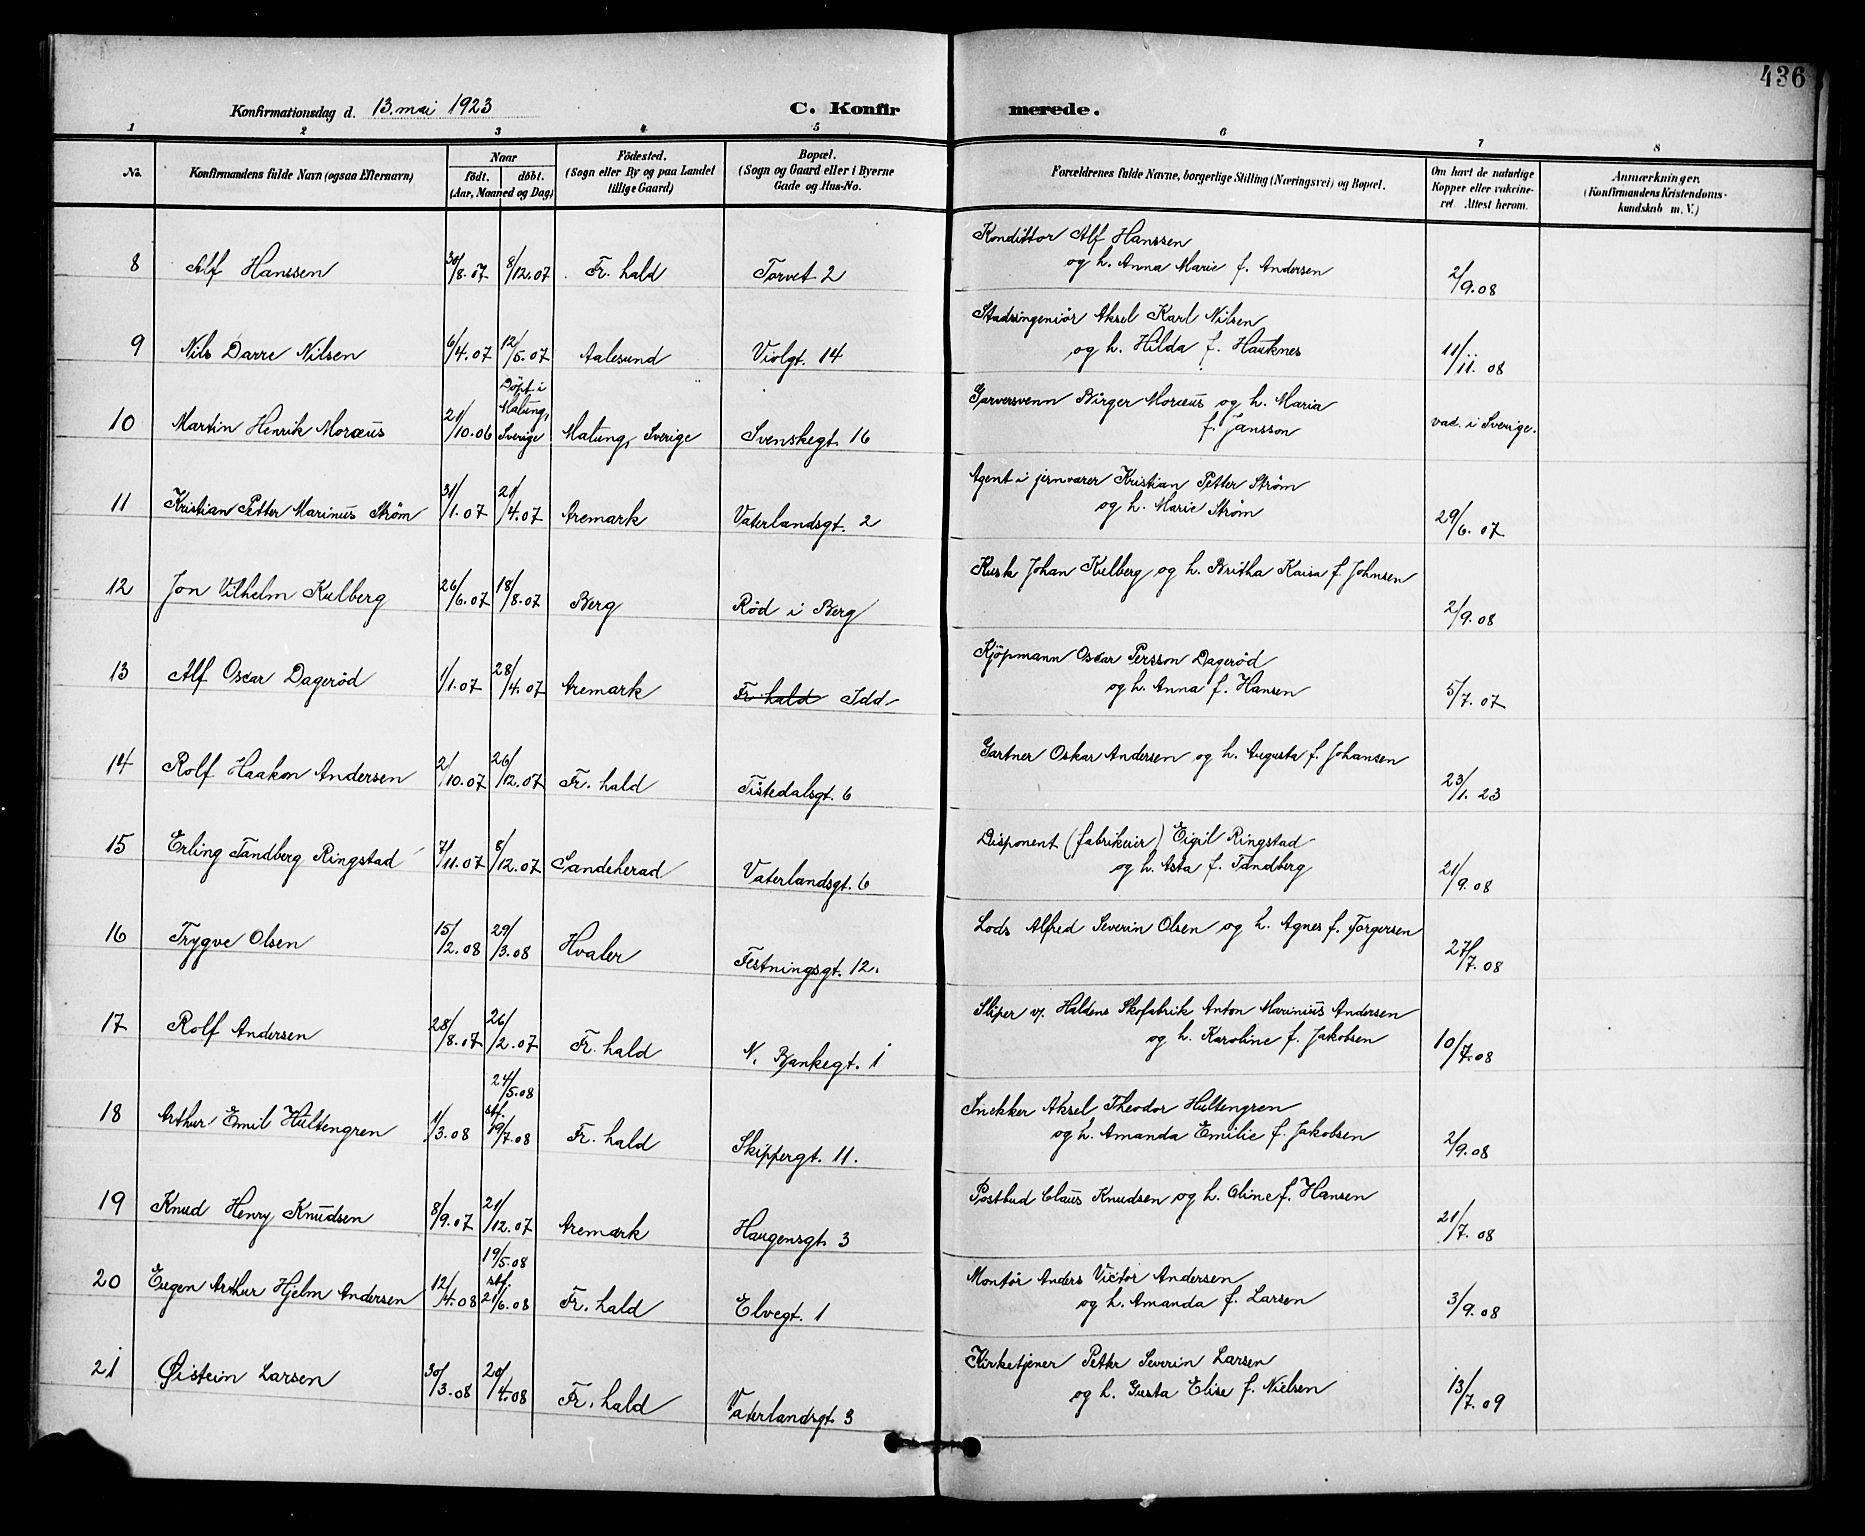 436
Konfirmationsdag d. 13. mai 1923 C. Konfirmerede.
1 2 3 4 5 6 7 8
No. Konfirmandens fulde Navn (ogsaa Efternavn) Naar födt. döbt. (Aar, Maaned og Dag) Födested. (Sogn eller By og paa Landet tillige Gaard) Bopæl. (Sogn og Gaard eller i Byerne Gade og Hus-No. Forældrenes fulde Navne, borgerlige Stilling (Næringsvei) og Bopæl. Om havt de naturlige Kopper eller vakcineret. Attest herom. Anmærkninger. (Konfirmandens Kristendomskundskab m. V.)
8 Alf Hanssen 30/8.07 8/12.07 Fr. hald Torvet 2 Kondittor Alf Hanssen
og h. Anna Marie f. Andersen 2/9.08
9 Nils Darre Nilsen 6/4.07 12/5.07 Aalesund Violgt. 14 Stadsingeniör Aksel Karl Nilsen
og h. Hilda f. Hauknes 11/11.08
10 Martin Henrik Moræus 21/10.06 Döpt i Malung, Sverige Malung, Sverige Svenskegt. 16 Garversvenn Birger Moræus og h. Maria
f. Jansson vac. i Sverige.
11 Kristian Petter Marinus Strøm 31/1.07 21/4.07 Aremark Vaterlandsgt. 2 Agent i jernvarer Kristian Petter Strøm
og h. Marie Strøm 29/6.07
12 Jon Vilhelm Kulberg 26/6.07 18/8.07 Berg Röd i Berg Kusk Johan Kulberg og h. Britha Kaisa f. Johnsen
2/9.08
13 Alf Oscar Dagerød 1/1.07 28/4.07 Aremark Fr. hald Idd Kjöpmann Oscar Persson Dagerød
og h. Anna f. Hansen 5/7.07
14 Rolf Haakon Andersen 2/10.07 26/12.07 Fr. hald Tistedalsgt. 6 Gartner Oskar Andersen og h. Augusta f. Johansen
23/1.23
15 Erling Tandberg Ringstad 7/11.07 8/12.07 Sandeherad Vaterlandsgt. 6 Disponent (fabrikeier) Eigil Ringstad
og h. Asta f. Tandberg 21/9.08
16 Trygve Olsen 15/2.08 29/3.08 Hvaler Festningsgt. 12. Lods Alfred Severin Olsen og h. Agnes f. Torgersen
27/7.08
17 Rolf Andersen 28/8.07 26/2.07 Fr. hald N. Bankegt. 1 Sliper v. Haldens Skofabrik Anton Marinius Andersen
og h. Karoline f. Jakobsen 10/7.08
18 Arthur Emil Hultengren 1/3.08 24/5.08 stf. 19/7.08 Fr. hald Skippergt. 11. Snekker Aksel Theodor Hultengren
og h. Amanda Emilie f. Jakobsen 2/9.08
19 Knud Henry Knudsen 8/9.07 21/12.07 Aremark Haugensgt. 3 Postbud Claus Knudsen og h. Oline f. Hansen
21/7.08
20 Eugen Arthur Hjelm Andersen 12/4.08 19/5.08 stf. 21/6.08 Fr. hald Elvegt. 1 Montör Anders Victor Andersen
og h. Amanda f. Larsen 3/9.08
21 Øistein Larsen 30/3.08 20/4.08 Fr. hald Vaterlandsgt. 3 Kirketjener Petter Severin Larsen
og h. Gusta Elise f. Nielsen 13/7.09